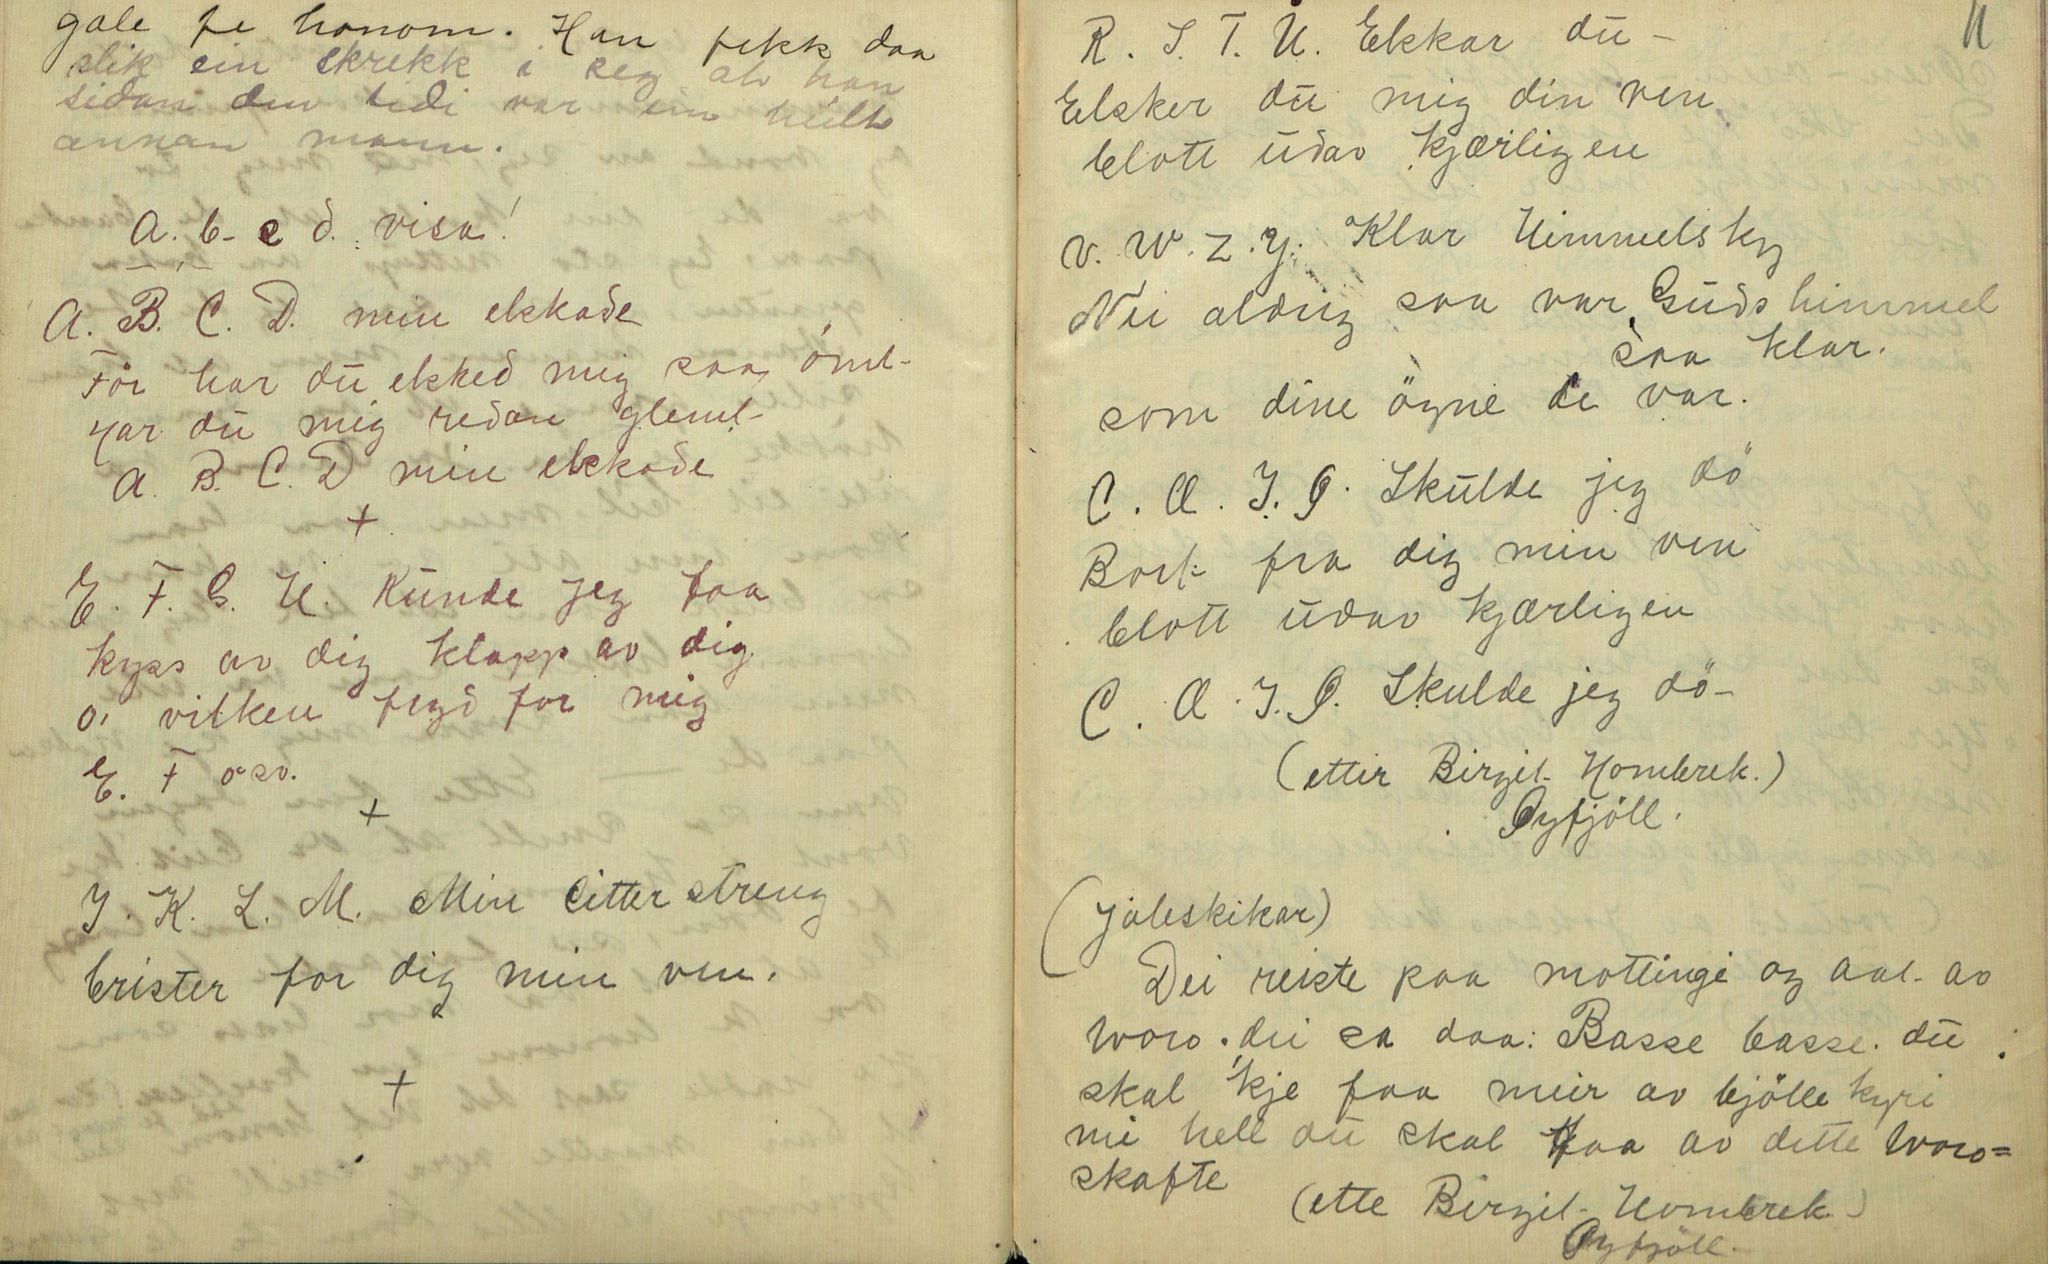 gale fe honom. Han fekk daa
slik ein skrekk i seg at han
sidan den tidi var ein heilt
annan mann.
A. b- c d. visa!
A. B. C. D. min elskade
För har du elsked mig saa ömt-
Har du mig redan glemt-
A. B. C. D min elskade
+
E. F. G. H. Kunde jeg faa
kyss av dig klapp av dig
o, vilken fryd for mig
E. F osv.
+
J. K. L. M. Min Citter streng
brister for dig min ven.
+
11
R. S. T. U. Elskar du -
Elsker du mig din ven
blott udav kjærligen
V. W. Z. Y. Klar Himmelsky
Nei aldrig saa var Guds himmel
saa klar.
som dine ögne de var.
C. Æ. J. Ø. Skulde jeg dö
Bort fra dig min ven
blott udav kjærligen
C. Æ. J. Ø. Skulde jeg dö-
(etter Birgit Hombrek.)
Øyfjöll.
(Joleskikar)
Dei reiste paa mottingi og aat av
woro. dei sa daa: Basse basse. du
skal 'kje faa meir av bjölle kyri
mi hell du skal faa av dette woro=
skafte
(ette Birgit Hombrek)
Øyfjöll-